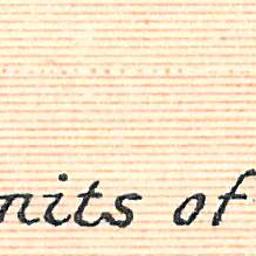 mits of